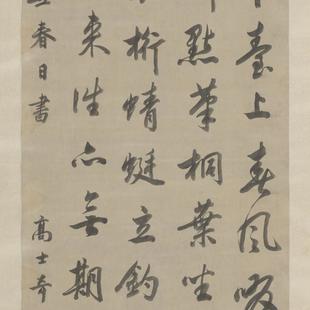 臺上春風啜
點筆桐葉坐
桁蜻蜓立釣
來往亦無期
春日書 高士奇